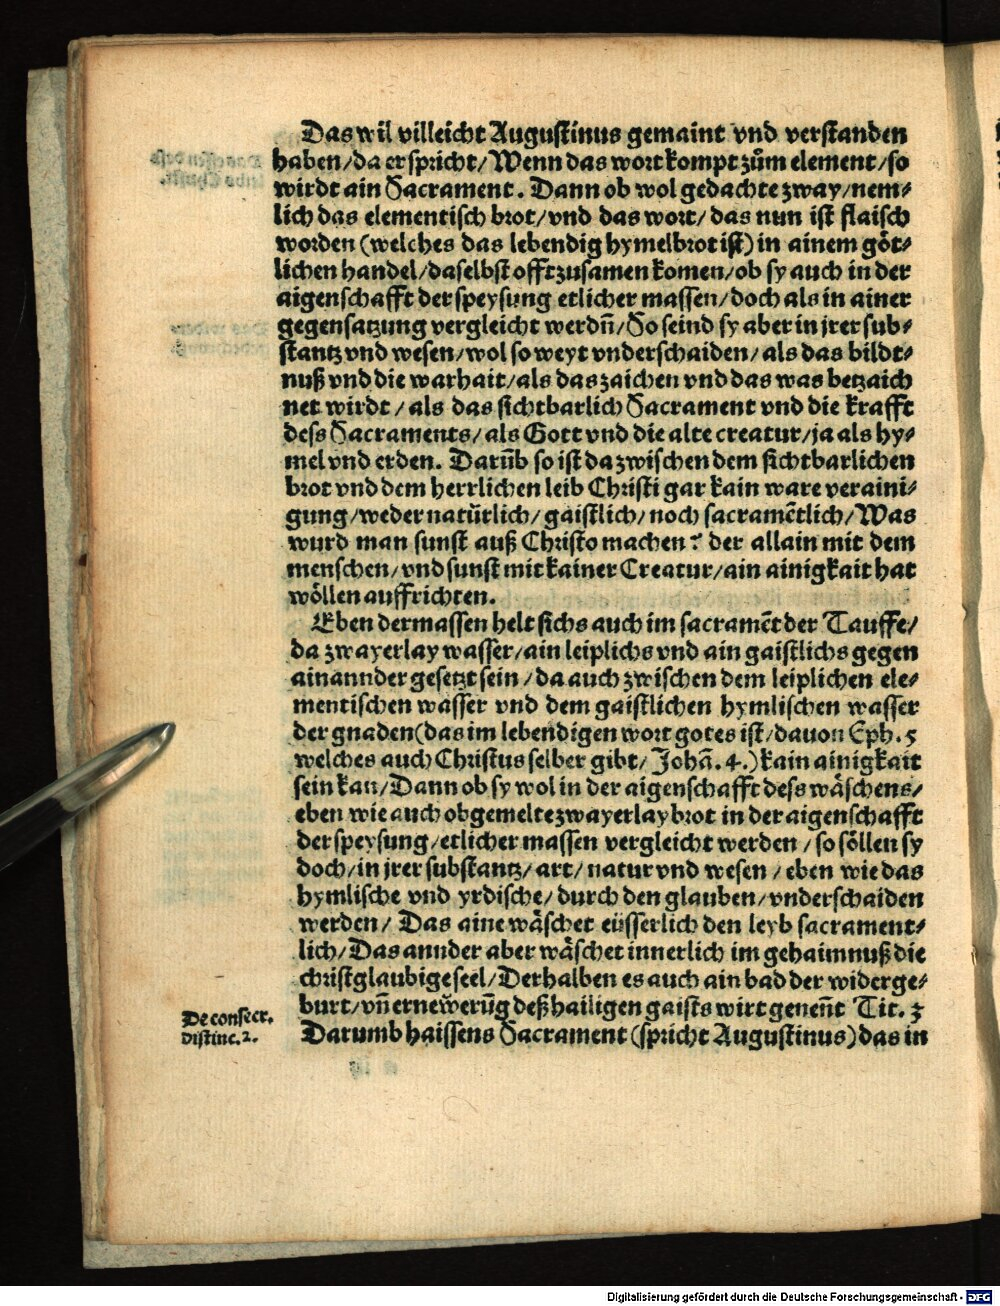 Das wil villeicht Augustinus gemaint vnd verstanden
haben/da er spricht/Wenn das wort kompt zům element/so
wirdt ain Sacrament. Dann ob wol gedachte zway/nem⸗
lich das elementisch brot/vnd das wort/das nun ist flaisch
worden (welches das lebendig hymelbrot ist) in ainem göt⸗
lichen handel/daselbst offt zusamen komen/ob sy auch in der
aigenschafft der speysung etlicher massen/doch als in ainer
gegensatzung vergleicht werdñ/So seind sy aber in jrer sub⸗
stantz vnd wesen/wol so weyt vnderschaiden/als das bildt⸗
nuß vnd die warhait/als das zaichen vnd das was betzaich
net wirdt/als das sichtbarlich Sacrament vnd die krafft
dess Sacraments/als Gott vnd die alte creatur/ja als hy⸗
mel vnd erden. Darũb so ist da zwischen dem sichtbarlichen
brot vnd dem herrlichen leib Christi gar kain ware veraini⸗
gung/weder natürlich/gaistlich/noch sacramẽtlich/Was
wurd man sunst auß Christo machen? der allain mit dem
menschen/vnd sunst mit kainer Creatur/ain ainigkait hat
wöllen auffrichten.
Eben dermassen helt sichs auch im sacramẽt der Tauffe/
da zwayerlay wasser/ain leiplichs vnd ain gaistlichs gegen
ainannder gesetzt sein/da auch zwischen dem leiplichen ele⸗
mentischen wasser vnd dem gaistlichen hymlischen wasser
der gnaden(das im lebendigen wort gotes ist/dauon Eph. 5
welches auch Christus selber gibt/Johã. 4.) kain ainigkait
sein kan/Dann ob sy wol in der aigenschafft dess wäschens/
eben wie auch obgemelte zwayerlay brot in der aigenschafft
der speysung/etlicher massen vergleicht werden/so söllen sy
doch/in jrer substantz/art/natur vnd wesen/eben wie das
hymlische vnd yrdische/durch den glauben/vnderschaiden
werden/Das aine wäschet eüsserlich den leyb sacrament⸗
lich/Das annder aber wäschet innerlich im gehaimnuß die
christglaubige seel/Derhalben es auch ain bad der widerge⸗
burt/vñ ernewerũg deß hailigen gaists wirt geneñt Tit. 3
De consecr.
distinc. 2.
Darumb haissens Sacrament (spricht Augustinus) das in
Digitalisierung gefördert durch die Deutsche Forschungsgemeinschaft - DFG